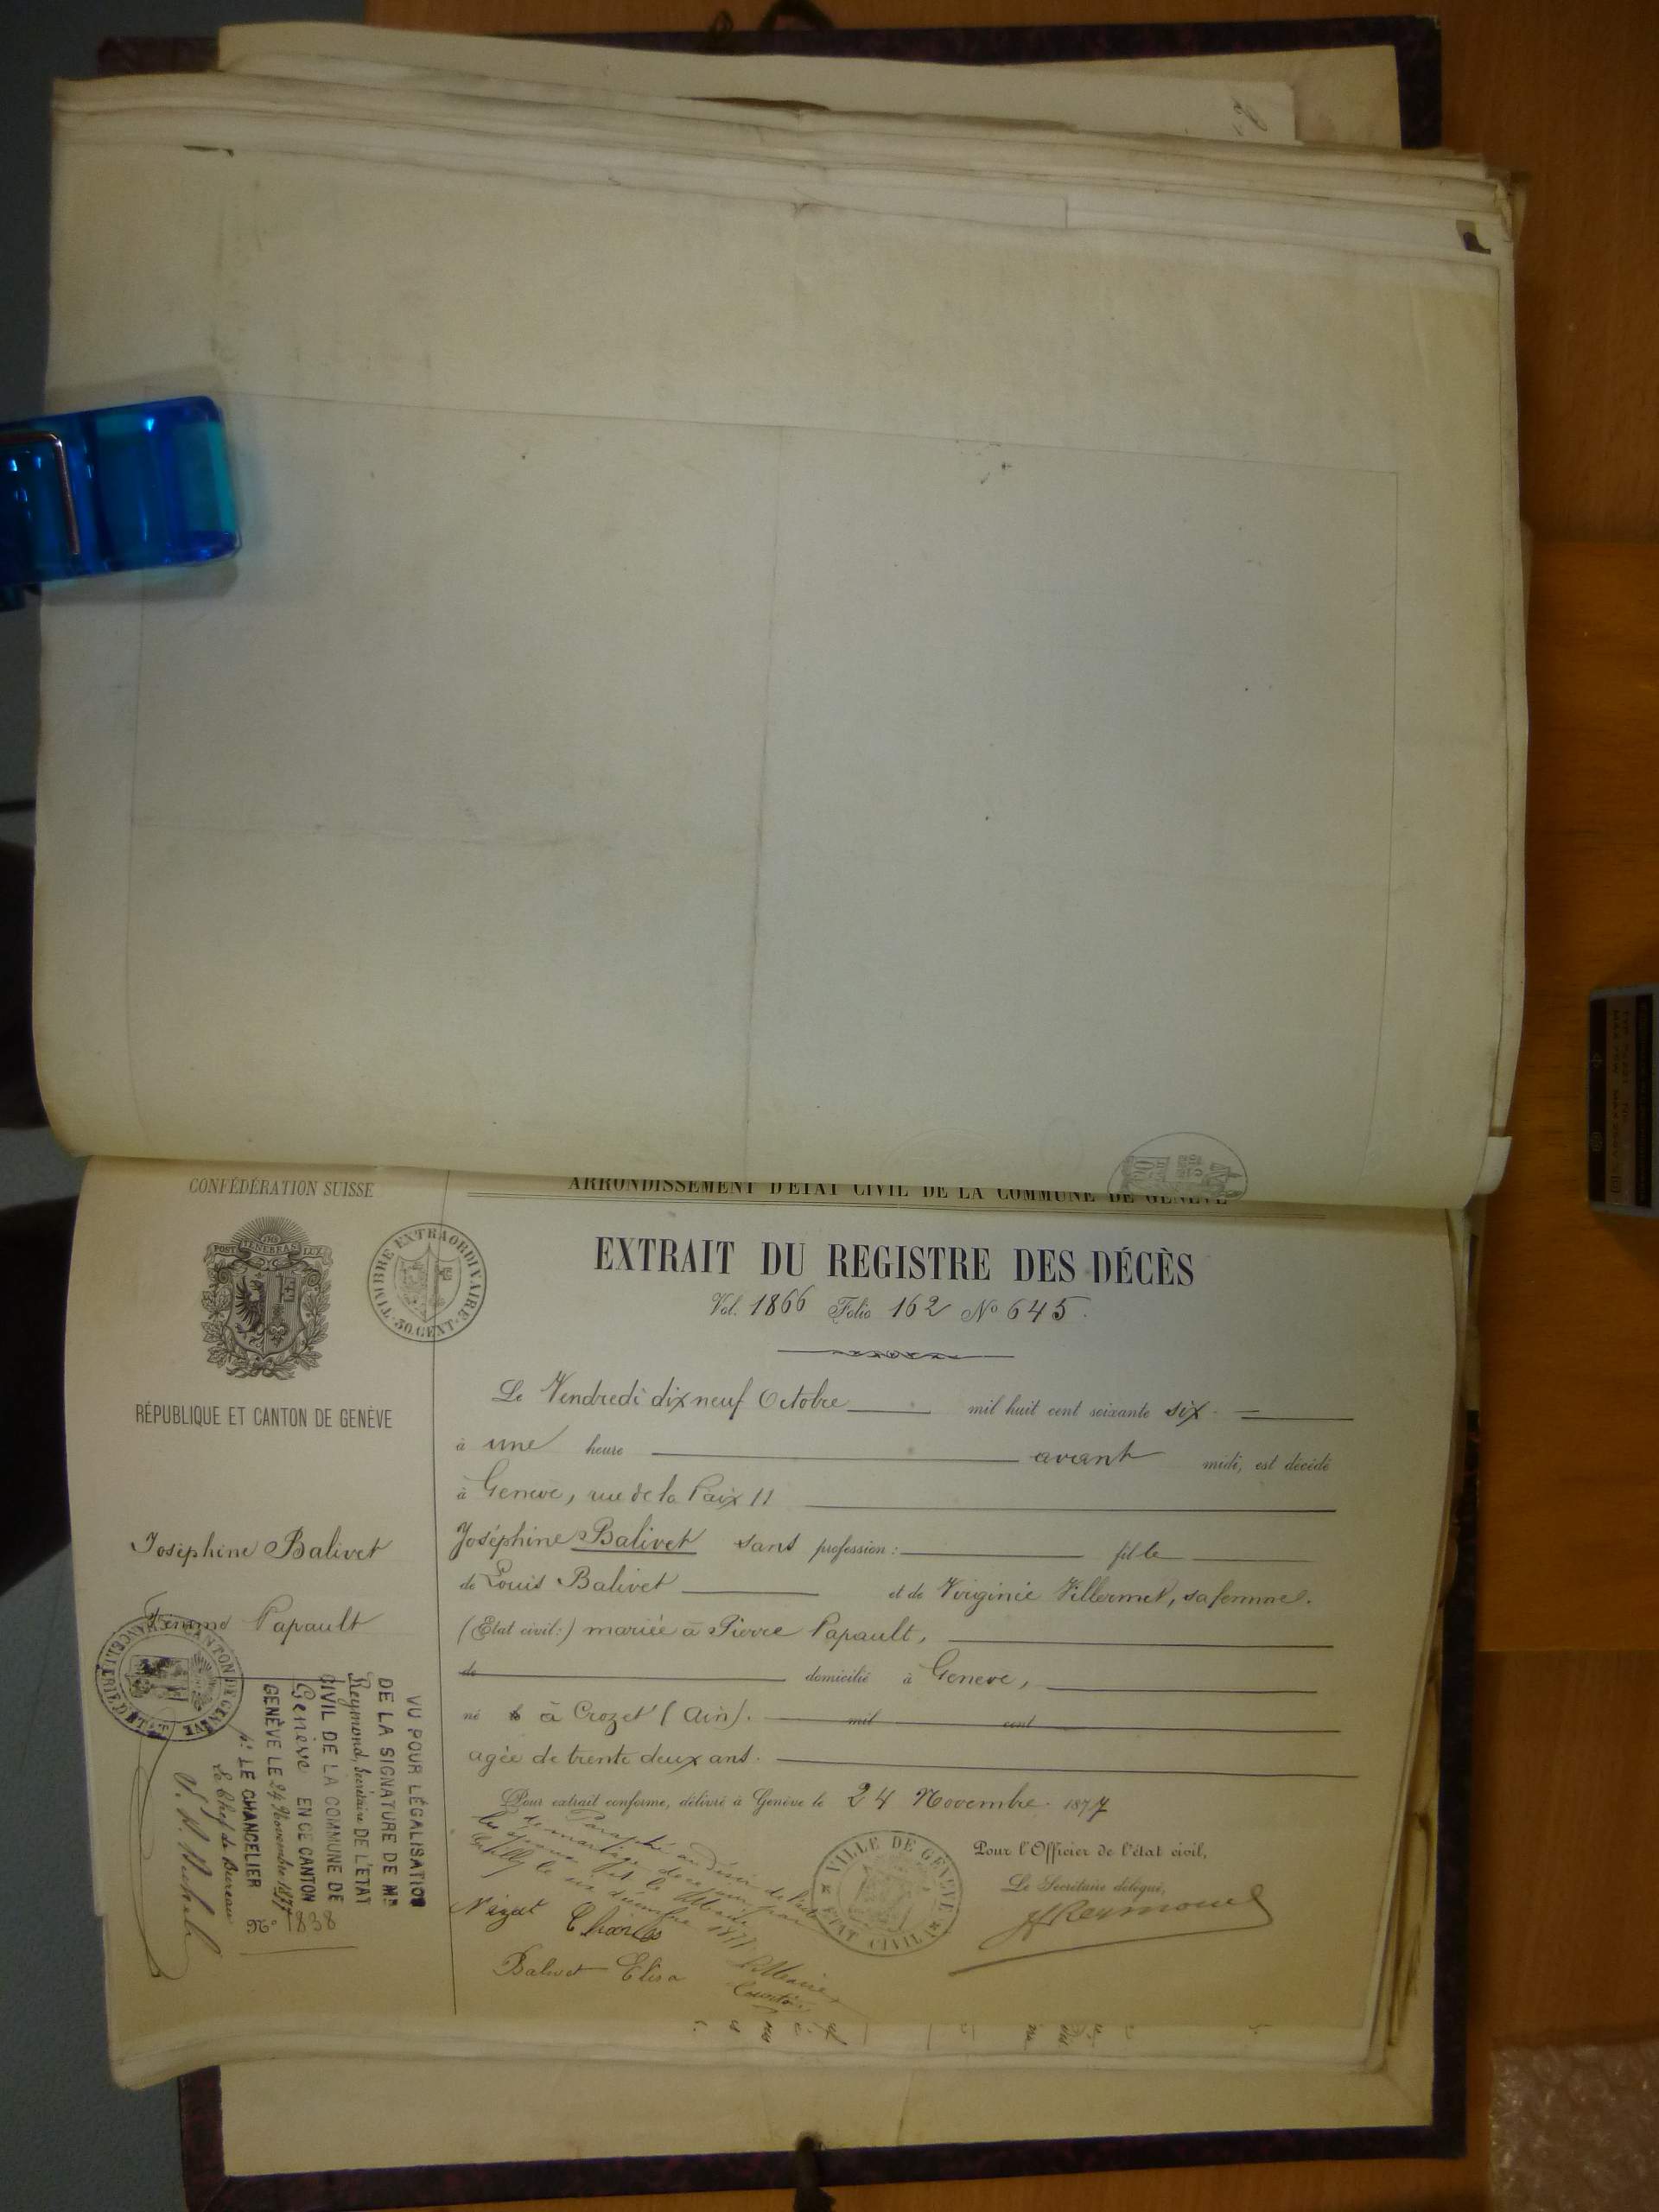 CONFÉDÉRATION SUISSE
POST TENEBRAS LUX
RÉPUBLIQUE ET CANTON DE GENÈVE
Joséphine Balivet
Femme Papault
TIMBRE EXTRAORDINAIRE
30 CENT.
VU POUR LÉGALISATION
DE LA SIGNATURE DE Mr
Reymond, Secrétaire DE L'ÉTAT
CIVIL DE LA COMMUNE DE
Genève EN CE CANTON
GENÈVE LE 24 Novembre 1877
pr LE CHANCELIER
Le Chef de Bureau
No 1838
ARRONDISSEMENT D'ÉTAT CIVIL DE LA COMMUNE DE GENÈVE
EXTRAIT DU REGISTRE DES DÉCÈS
Vol. 1866 Folio 162 No 645.
Le Vendredi dix neuf Octobre mil huit cent soixante six
à une heure avant midi, est décédé
à Genève, rue de la Paix 11
Joséphine Balivet sans profession: fille
de Louis Balivet et de Virginie Villermet, sa femme.
(Etat civil:) mariée à Pierre Papault,
de domicilié à Genève,
né à Crozet (Ain). mil cent
agée de trente deux ans.
Pour extrait conforme, délivré à Genève le 24 Novembre 1877
Paraphé au désir de l'acte
de mariage de ce jour par
les époux et le Maire
le six décembre 1877
Pour l'Officier de l'état civil,
Le Secrétaire délégué,
JReymond
VILLE DE GENÈVE
ÉTAT CIVIL
Charles
Balivet Elisa
Le Maire